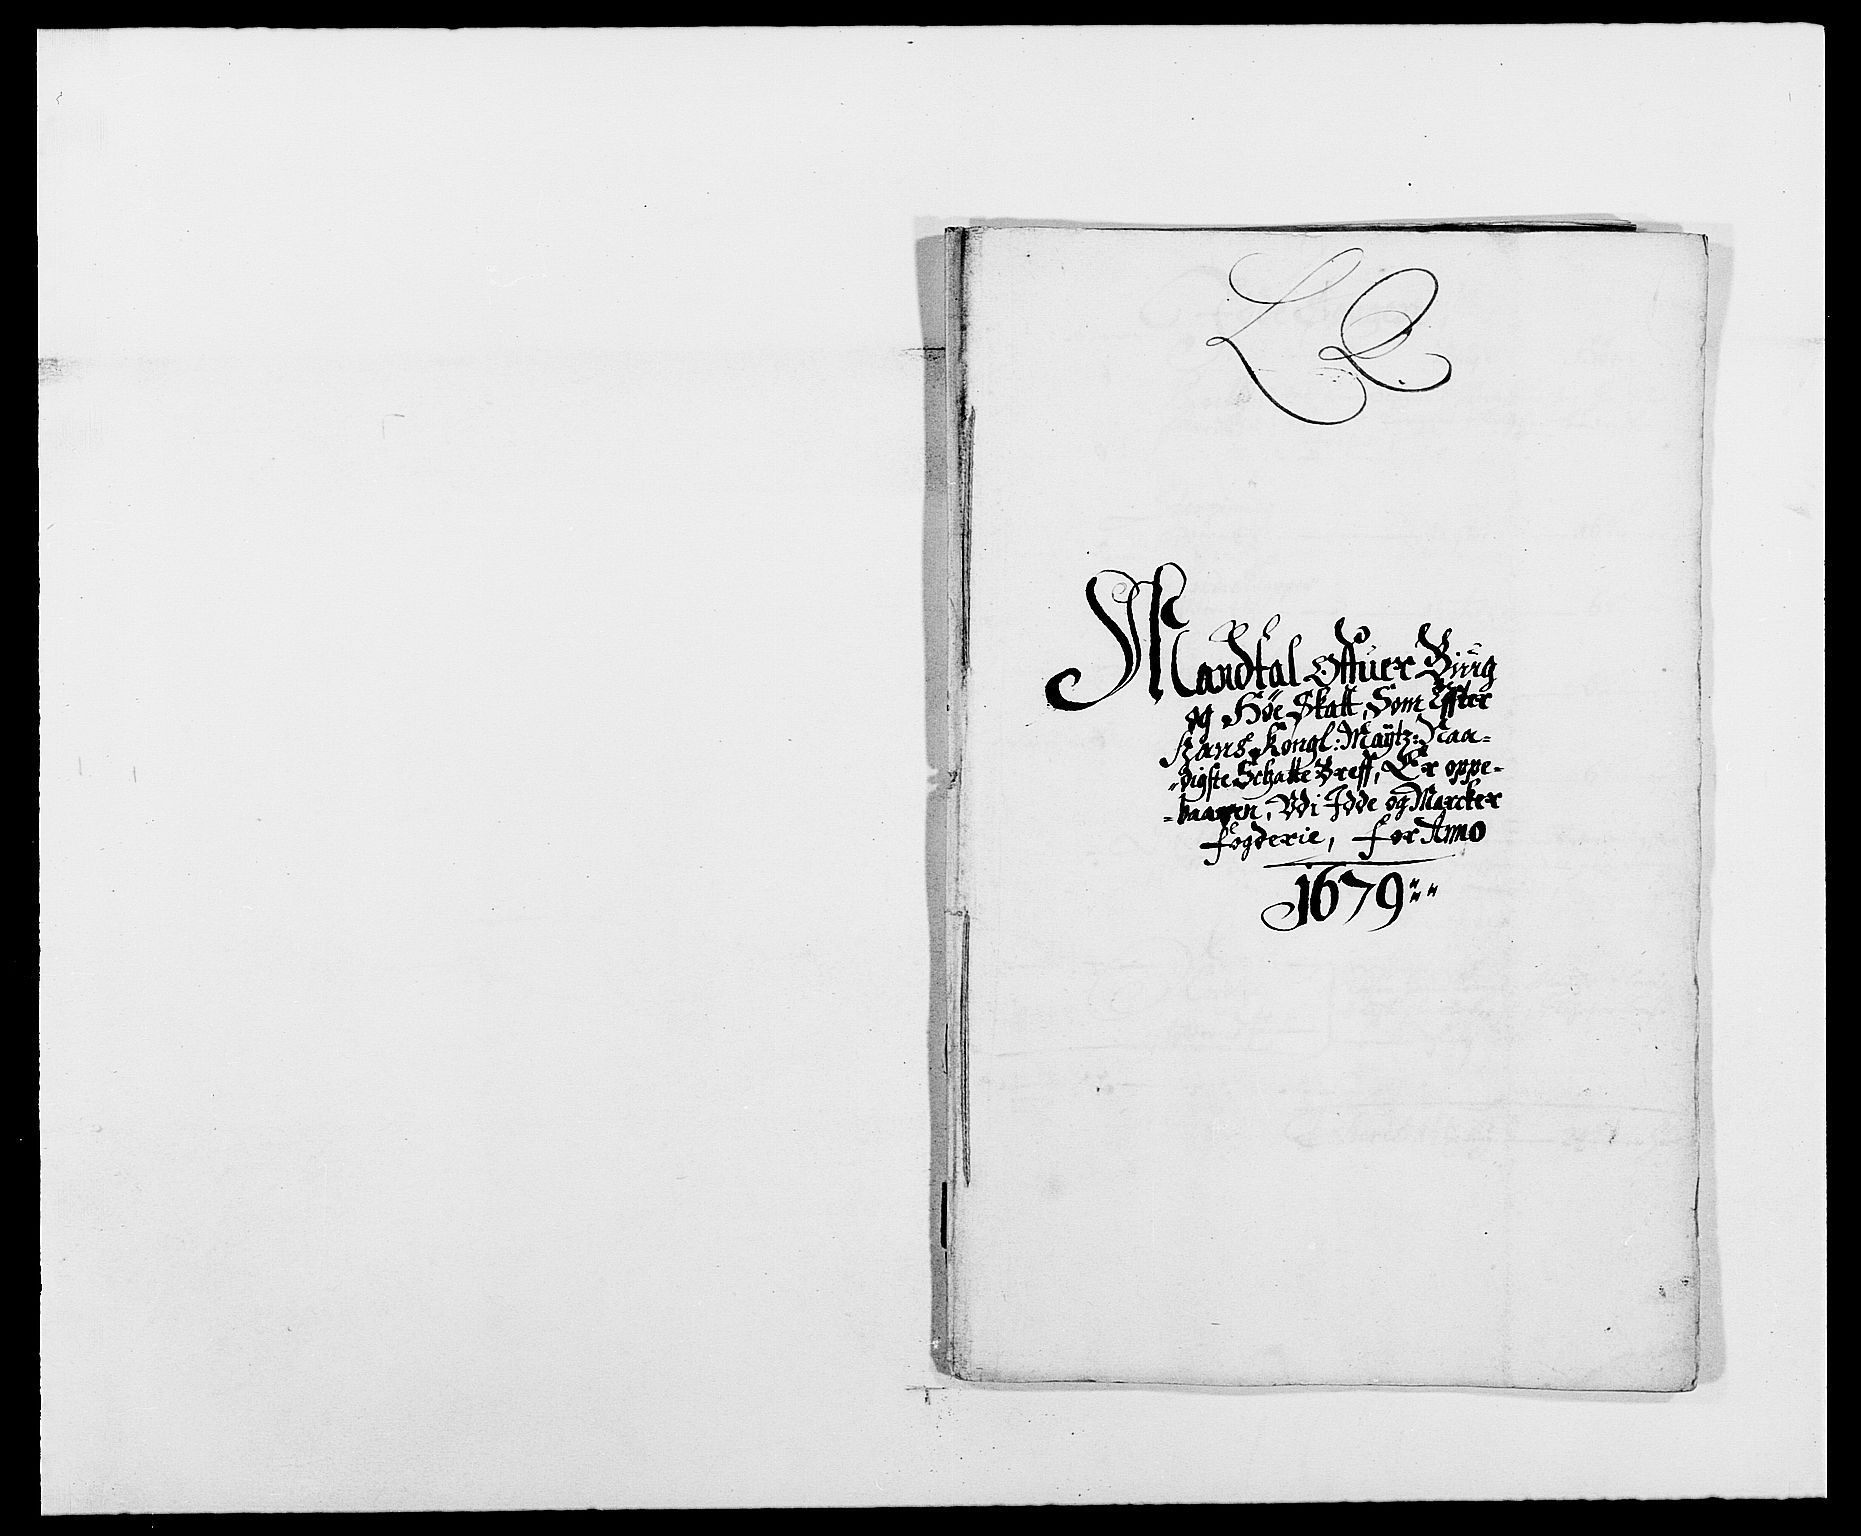 Mandtal Offuer Biug
og Høe Skatt, Som Effter
Hans Kongl: Maÿtz: Naa-
digste Schatte Breff, Er oppe-
-baaren, Vdi Idde og Marcker
fogderie, for Anno
1679